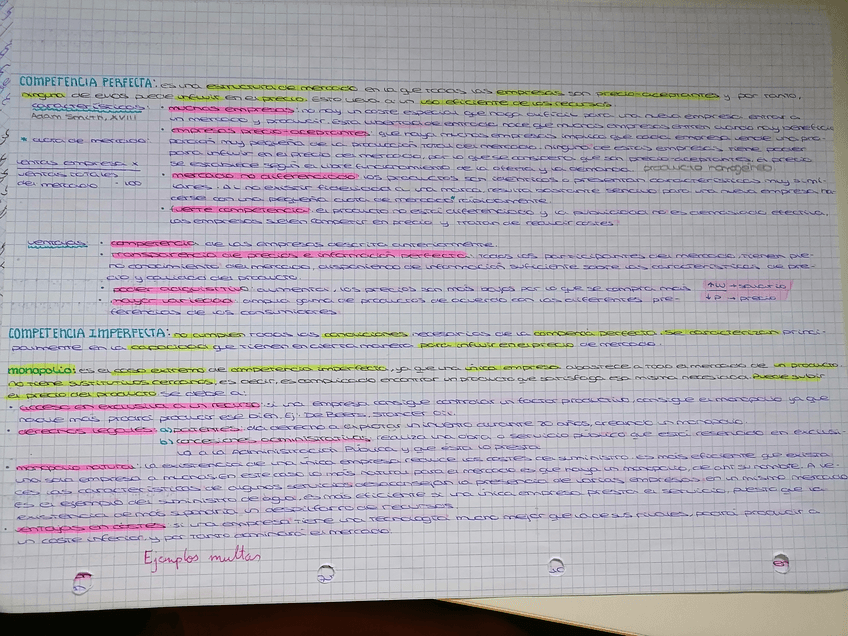 COMPETENCIA PERFECTA: es una estructura de mercado en la que todas las empresas son precio-aceptantes y por tanto
ninguna de ellas puede influir en el precio. Esto lleva a un uso eficiente de los recursos.
características: • muchas empresas: no hay un coste especial que haga difícil para una nueva empresa entrar a
Adam Smith, XVIII un mercado y producir. Esta libertad de entrada hace que muchas empresas entren cuando hay beneficios
• empresas precio-aceptantes: que haya muchas empresas implica que cada empresa vende una pro-
* cuota de mercado: porción muy pequeña de la producción total del mercado, ninguna de estas empresas tiene poder
para influir en el precio del mercado, por lo que se considera que son precio-aceptantes, el precio
ventas empresa x se establece según el libre funcionamiento de la oferta y la demanda. producto homogéneo
ventas totales • mercado no diferenciado: los productos son idénticos o presentan características muy simi-
del mercado · 100 lares. Al no existir fidelidad a una marca, resulta bastante sencillo para una nueva empresa ha-
cerse con una pequeña cuota de mercado* rápidamente.
• fuerte competencia: el producto no está diferenciado y la publicidad no es demasiado efectiva,
las empresas suelen competir en precio y tratan de reducir costes.
ventajas • competencia de las empresas descrita anteriormente.
• transparencia de precios e información perfecta: todos los participantes del mercado tienen ple-
no conocimiento del mercado, disponiendo de información suficiente sobre las características de pre-
cio y calidad del producto
• poder adquisitivo: aumenta, los precios son más bajos por lo que se compra más ↑W → salario
• mayor variedad: amplia gama de productos de acuerdo con las diferentes pre- ↓P → precio
ferencias de los consumidores.
COMPETENCIA IMPERFECTA: no cumplen todas las condiciones necesarias de la competencia perfecta. Se caracterizan princi-
palmente en la capacidad que tienen en cierta manera para influir en el precio de mercado.
monopolio: es el caso extremo de competencia imperfecta, ya que una única empresa abastece a todo el mercado de un producto
no tiene sustitutivos cercanos, es decir, es complicado encontrar un producto que satisfaga esa misma necesidad. Puede subir
el precio del producto se debe a:
• acceso en exclusiva a un recurso: si una empresa consigue controlar un factor productivo, consigue el monopolio ya que
nadie más podrá producir ese bien. Ej: De Beers, Standard Oil.
• derechos legales: a) patentes: da derecho a explotar un invento durante 20 años, creando un monopolio.
b) concesiones administrativas: realiza una obra o servicio público que está reservado en exclusi-
va a la Administración Pública y que ésta lo presta
• monopolio natural: la existencia de una única empresa reduce los costes del suministro. Es más eficiente que exista
una sola empresa a muchas, en este caso lo más natural para el mercado es que haya un monopolio, de ahí su nombre. A ve-
ces las características de algunos servicios desaconsejan la presencia de varias empresas en un mismo mercado
es el ejemplo del suministro de agua, es más eficiente si una única empresa presta el servicio, puesto que la
existencia de más supondría un despilfarro de recursos.
• ventajas en costes: si una empresa tiene una tecnología mucho mejor que la de sus rivales, podrá producir a
un coste inferior, y por tanto dominará el mercado.
Ejemplos multas